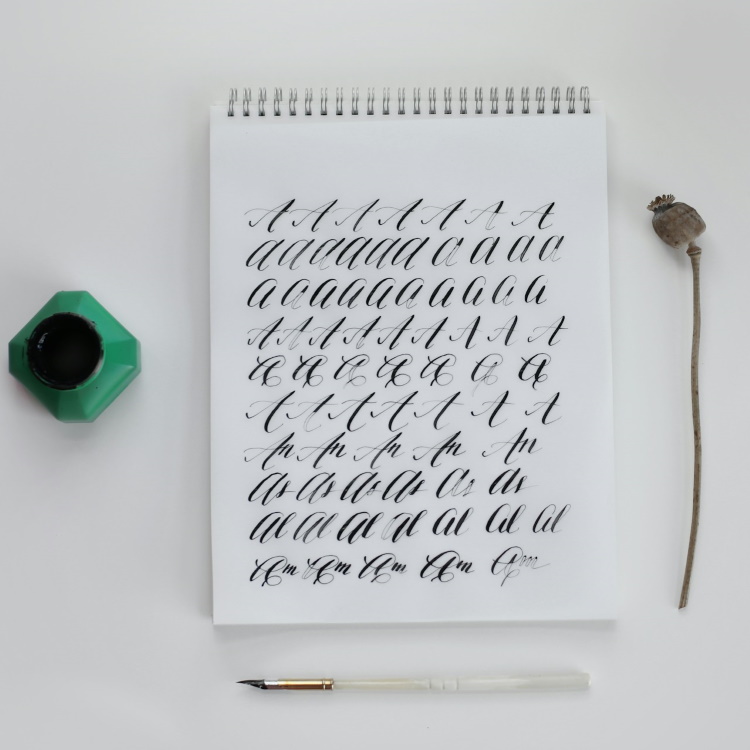 A A A A A A A
a a a a a a a a a a
a a a a a a a a a a
A A A A A A A A A
a a a a a a a
A A A A A A A
An An An An An
as as as as as as
al al al al al al al
am am am am am